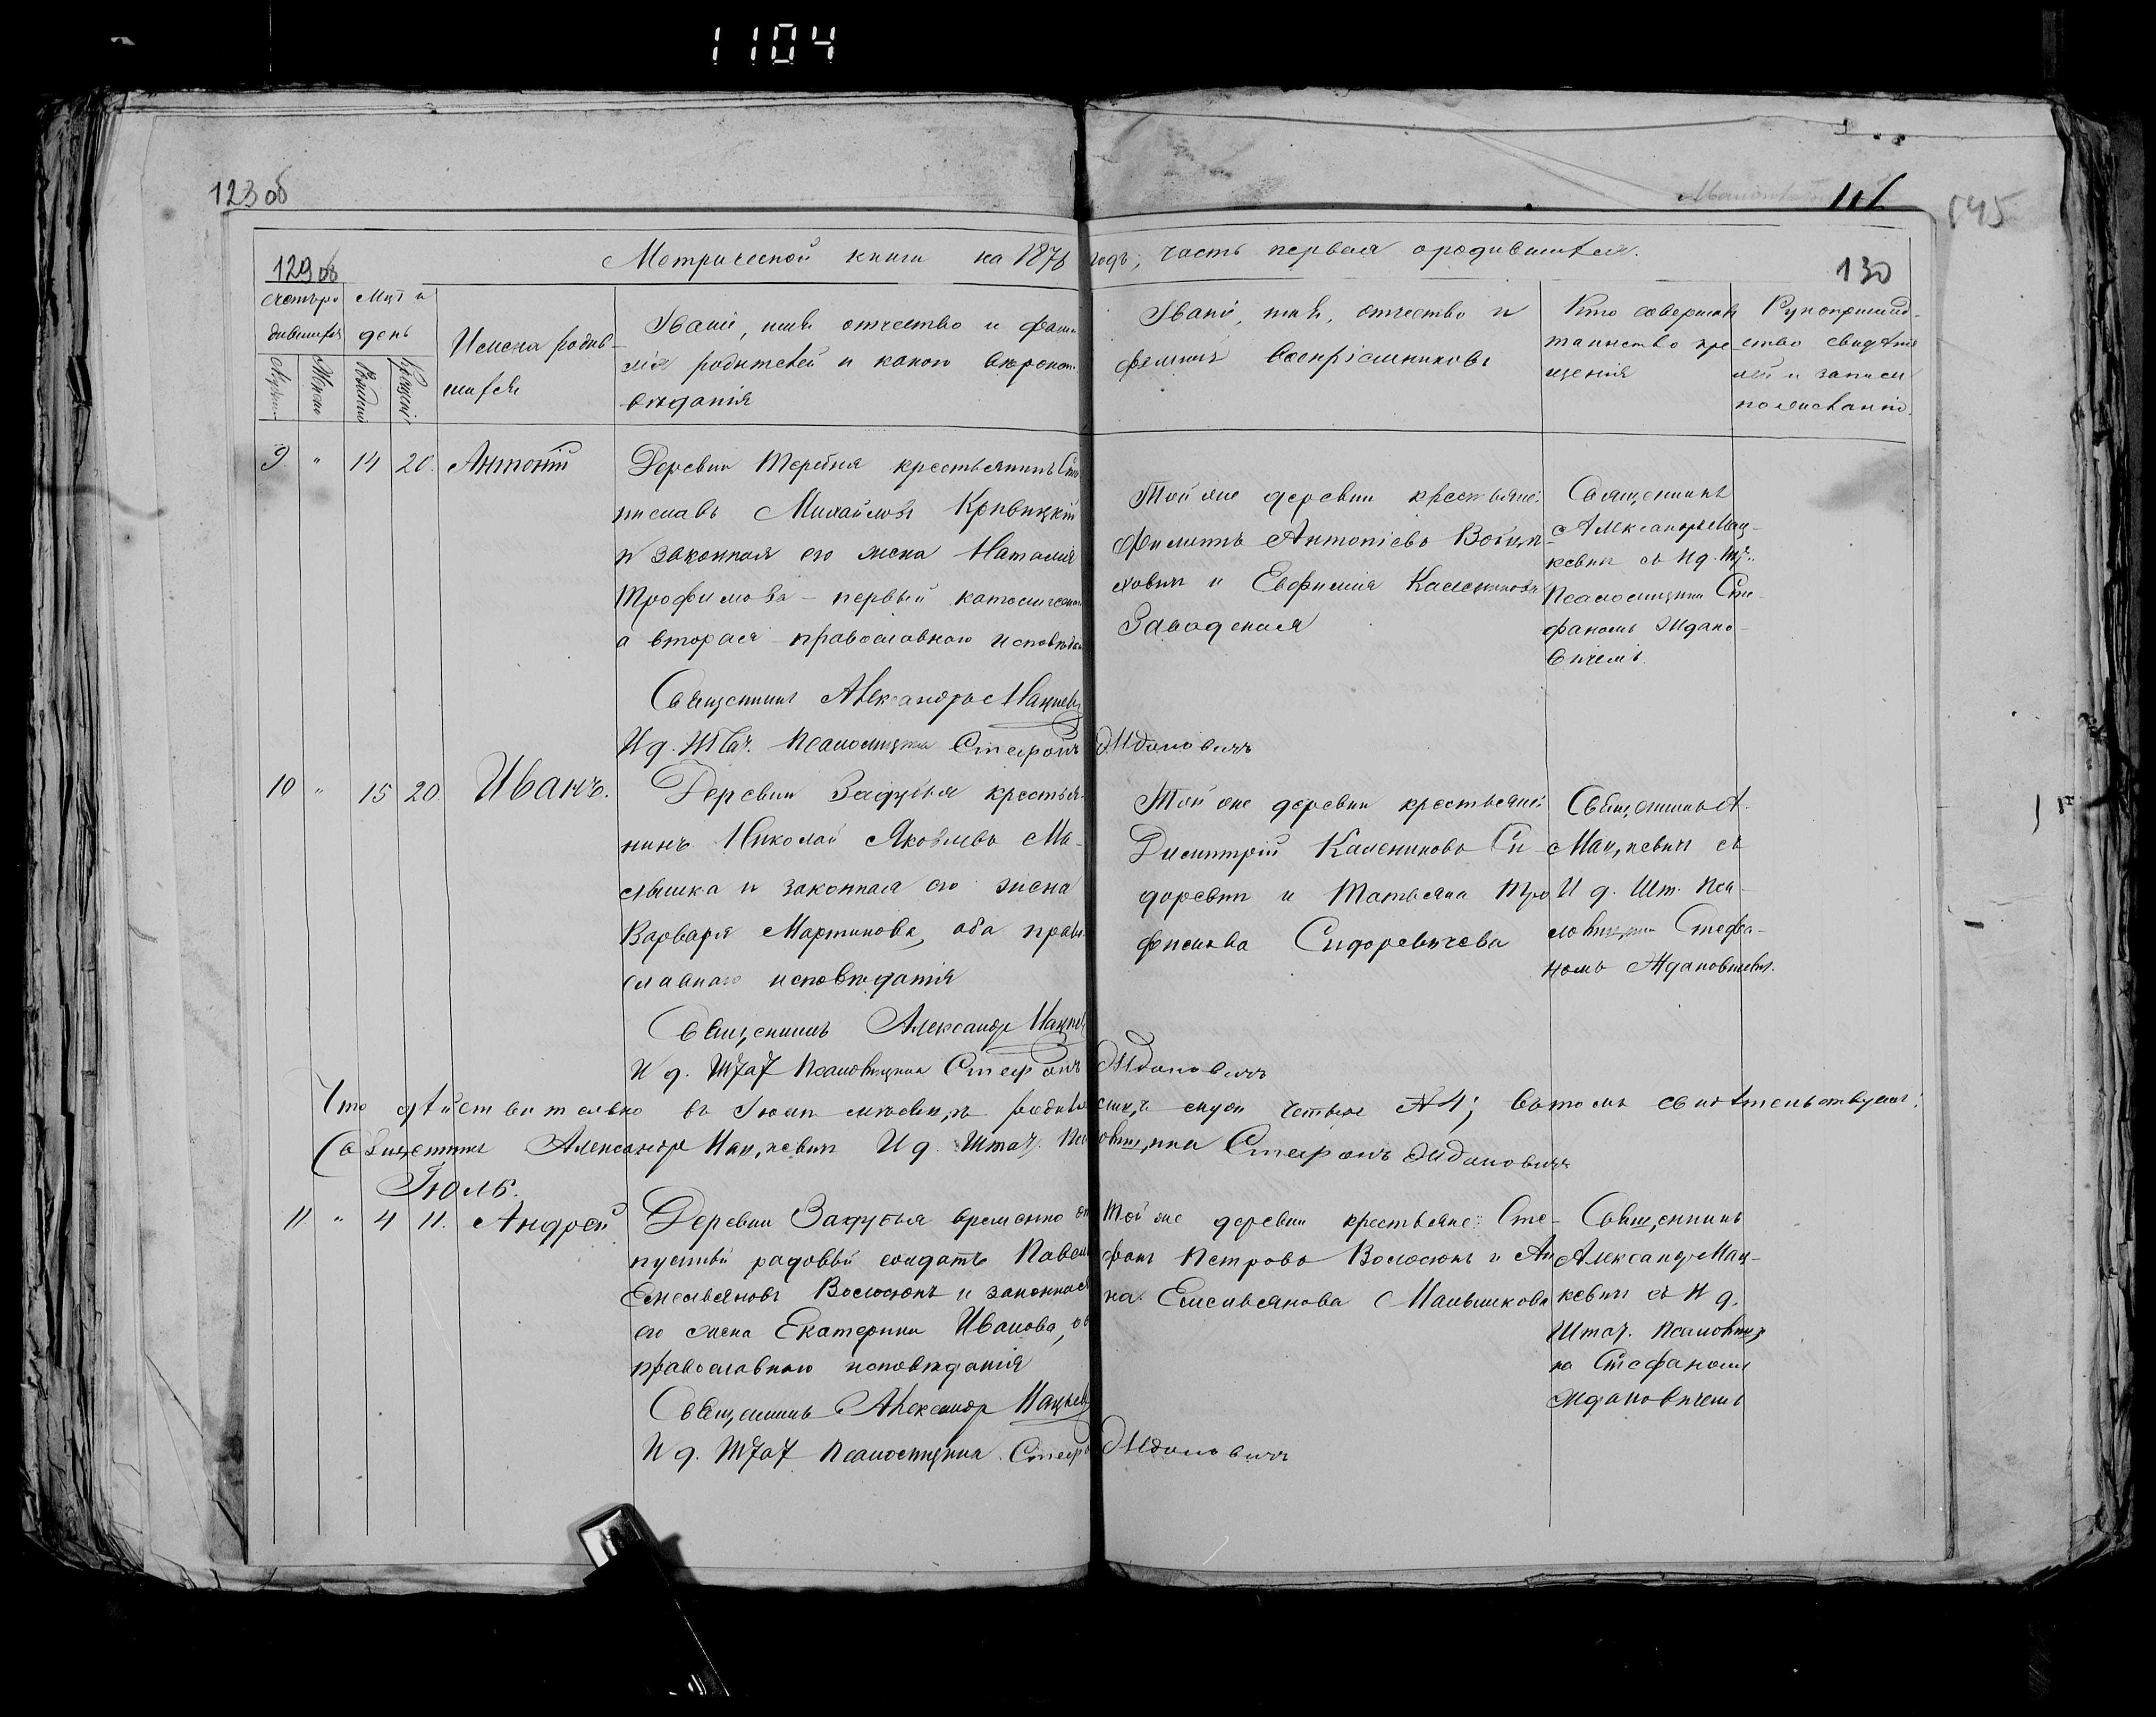 1104
123 об
145
Метрической книги на 1876 годъ, часть первая о родившихся.
129 об
130
Счетъ родившихся
Мцъ и день
Имена родившихся
Званіе, имя отчество и фамилія родителей и какого вѣроисповѣданія
Званіе, имя, отчество и фамилія воспріемниковъ
Кто совершалъ таинство крещенія
Рукоприкладство свидѣтелей и записи по желанію.
9 " 14 20. Антоній
Деревни Теребня крестьянинъ
ниславъ Михайловъ Кривицкій
и законная его жена Наталія
Трофимова – первый католическаго
а вторая православного исповѣдан
Священникъ Александръ Мацкевъ
И д. Псаломщика Стефанъ Ждановичъ
Той же деревни крестьяне:
Филиппъ Антоніевъ
и Евфимія Каленикова
Заводская
Священникъ
Александръ Мац-
кевичъ съ И д. Шт.
Псаломщикомъ Сте-
фаномъ Ждано-
вичемъ.
10 " 15 20. Иванъ.
Деревни Задубья крестья-
нинъ Николай Яковлевъ Ма-
лышка и законная его жена
Варвара Мартинова, оба право
славнаго исповѣданія
Священникъ Александръ Мацкев
И д. Псаломщика Стефанъ Ждановичъ
Той же деревни крестьяне:
Димитрій Калениковъ Си-
доревичъ и Татьяна Тро
фимова Сидоревичева
Священникъ А.
Мацкевичъ съ
И д. Шт. Пса-
ломщика Стефа-
номъ Ждановичемъ.
Что дѣйствительно въ Іюнѣ мѣсяцѣ родившихся четыре №4; въ томъ свидѣтельствуемъ:
Священникъ Александръ Мацкевичъ И д. Штат. Псаломщика Стефанъ Ждановичъ
Іюль.
11 " 4 11. Андрей
Деревни Задубья временно от
пускный рядовый солдатъ Павелъ
Емельяновъ Волосюкъ и законная
его жена Екатерина Иванова, об
православнаго исповѣданія
Священникъ Александръ Мацкев
И д. Псаломщика Стефанъ Ждановичъ
Той же деревни крестьяне: Сте-
фанъ Петровъ Волосюкъ и Ан
на Емельянова Малышкова
Священникъ
Александръ Мац-
кевичъ съ И д.
Штат. Псаломщи
ка Стефаномъ
Ждановичемъ